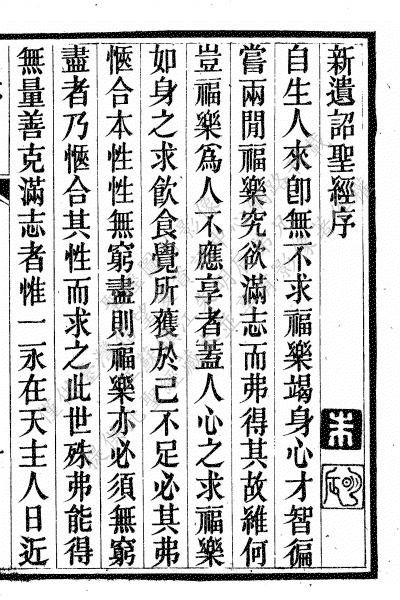 新遺詔聖經序
自生人來卽無不求福樂竭身心才智徧
嘗兩閒福樂究欲滿志而弗得其故維何
豈福樂爲人不應享者蓋人心之求福樂
如身之求飲食覺所獲於己不足必其弗
愜合本性性無窮盡則福樂亦必須無窮
盡者乃愜合其性而求之此世殊弗能得
無量善克滿志者惟一永在天主人日近